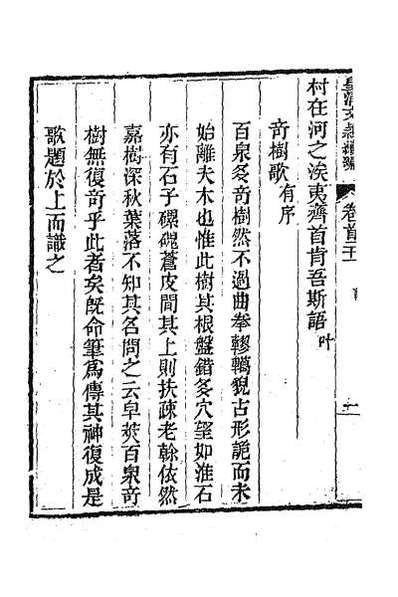 皇清文穎續編 卷首三十一
村在河之涘夷齊首肯吾斯語叶
竒樹歌有序
百泉多竒樹然不過曲拳轇轕貌古形詭而未
始離夫木也惟此樹其根盤錯多穴望如淮石
亦有石子磥磈蒼皮間其上則扶疎老榦依然
嘉樹深秋葉落不知其名問之云皁莢百泉竒
樹無復竒乎此者矣旣命筆爲傳其神復成是
歌題於上而識之